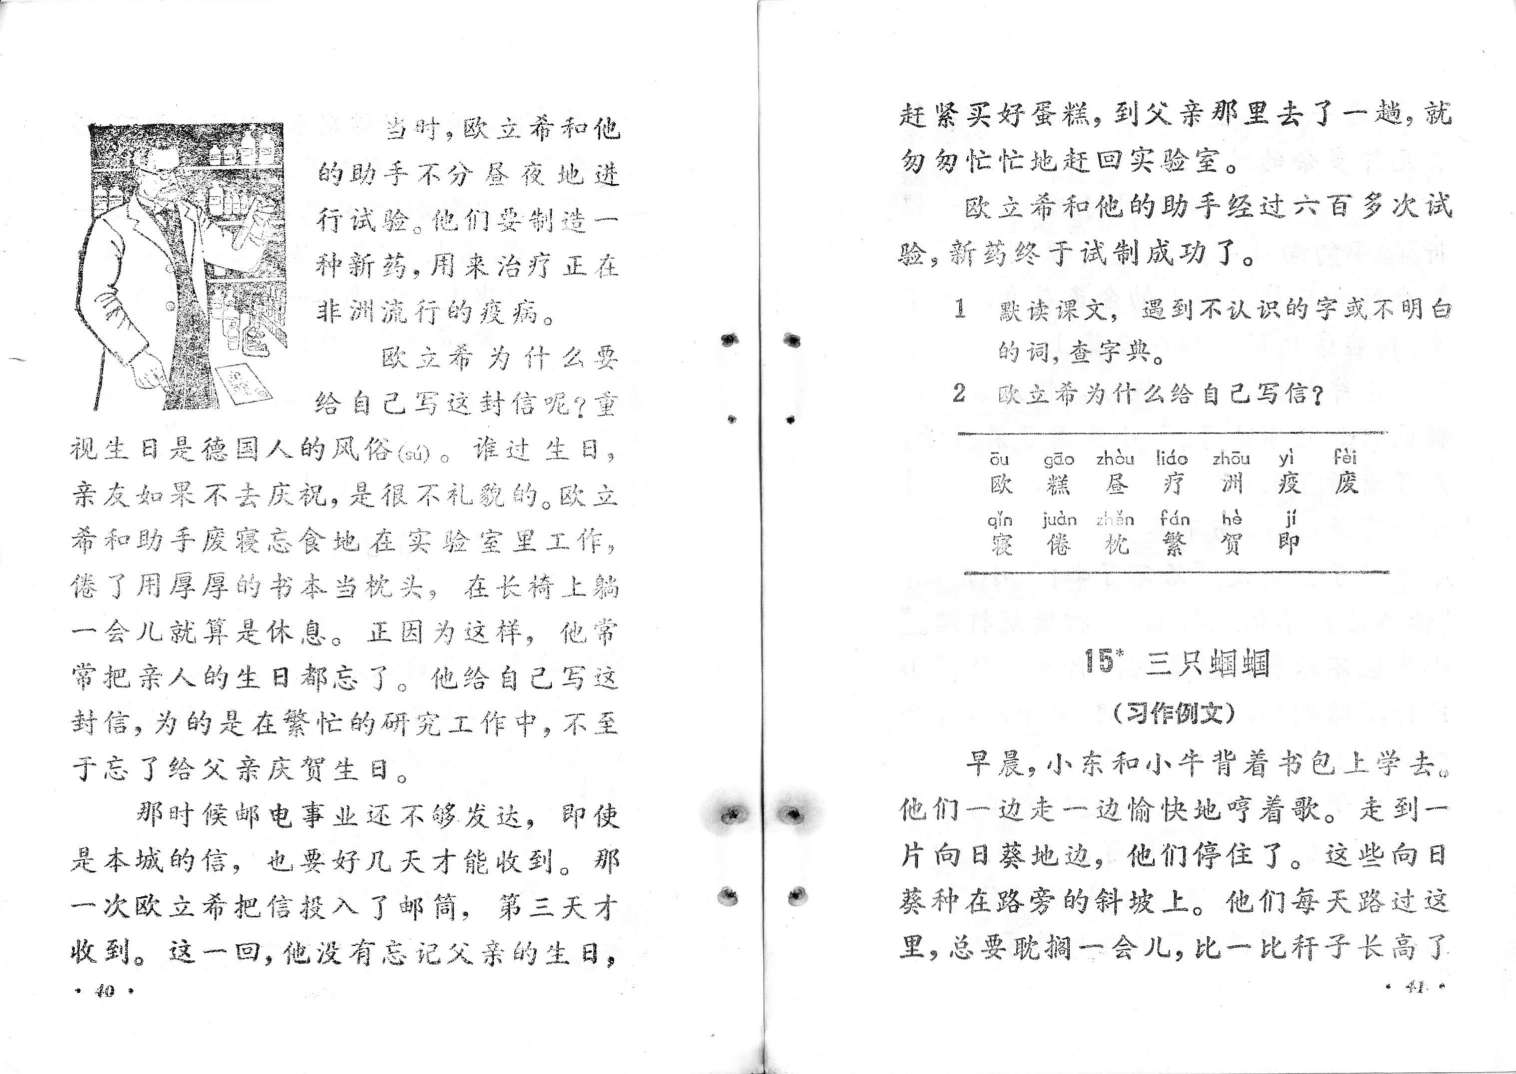 当时，欧立希和他
的助手不分昼夜地进
行试验。他们要制造一
种新药，用来治疗正在
非洲流行的疫病。
欧立希为什么要
给自己写这封信呢？重
视生日是德国人的风俗(sú)。谁过生日，
亲友如果不去庆祝，是很不礼貌的。欧立
希和助手废寝忘食地在实验室里工作，
倦了用厚厚的书本当枕头，在长椅上躺
一会儿就算是休息。正因为这样，他常
常把亲人的生日都忘了。他给自己写这
封信，为的是在繁忙的研究工作中，不至
于忘了给父亲庆贺生日。
那时候邮电事业还不够发达，即使
是本城的信，也要好几天才能收到。那
一次欧立希把信投入了邮筒，第三天才
收到。这一回，他没有忘记父亲的生日，
·40·
赶紧买好蛋糕，到父亲那里去了一趟，就
匆匆忙忙地赶回实验室。
欧立希和他的助手经过六百多次试
验，新药终于试制成功了。
1 默读课文，遇到不认识的字或不明白
的词，查字典。
2 欧立希为什么给自己写信？
ōu gāo zhòu liáo zhōu yì fèi
欧 糕 昼 疗 洲 疫 废
qǐn juàn zhěn fán hè jí
寝 倦 枕 繁 贺 即
15* 三只蝈蝈
（习作例文）
早晨，小东和小牛背着书包上学去。
他们一边走一边愉快地哼着歌。走到一
片向日葵地边，他们停住了。这些向日
葵种在路旁的斜坡上。他们每天路过这
里，总要耽搁一会儿，比一比秆子长高了
·41·